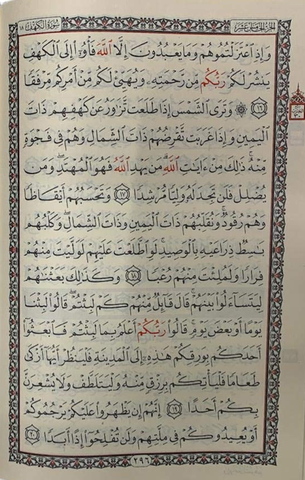 سورة الكهف ١٨
الجزء الخامس عشر
وَإِذِ ٱعْتَزَلْتُمُوهُمْ وَمَا يَعْبُدُونَ إِلَّا ٱللَّهَ فَأْوُۥٓا۟ إِلَى ٱلْكَهْفِ
يَنشُرْ لَكُمْ رَبُّكُم مِّن رَّحْمَتِهِۦ وَيُهَيِّئْ لَكُم مِّنْ أَمْرِكُم مِّرْفَقًا
﴿١٦﴾ ۞ وَتَرَى ٱلشَّمْسَ إِذَا طَلَعَت تَّزَٰوَرُ عَن كَهْفِهِمْ ذَاتَ
ٱلْيَمِينِ وَإِذَا غَرَبَت تَّقْرِضُهُمْ ذَاتَ ٱلشِّمَالِ وَهُمْ فِى فَجْوَةٍ
مِّنْهُ ۚ ذَٰلِكَ مِنْ ءَايَٰتِ ٱللَّهِ ۗ مَن يَهْدِ ٱللَّهُ فَهُوَ ٱلْمُهْتَدِ ۖ وَمَن
يُضْلِلْ فَلَن تَجِدَ لَهُۥ وَلِيًّا مُّرْشِدًا ﴿١٧﴾ وَتَحْسَبُهُمْ أَيْقَاظًا
وَهُمْ رُقُودٌ ۚ وَنُقَلِّبُهُمْ ذَاتَ ٱلْيَمِينِ وَذَاتَ ٱلشِّمَالِ ۖ وَكَلْبُهُم
بَٰسِطٌ ذِرَاعَيْهِ بِٱلْوَصِيدِ ۚ لَوِ ٱطَّلَعْتَ عَلَيْهِمْ لَوَلَّيْتَ مِنْهُمْ
فِرَارًا وَلَمُلِئْتَ مِنْهُمْ رُعْبًا ﴿١٨﴾ وَكَذَٰلِكَ بَعَثْنَٰهُمْ
لِيَتَسَآءَلُوا۟ بَيْنَهُمْ ۚ قَالَ قَآئِلٌ مِّنْهُمْ كَمْ لَبِثْتُمْ ۖ قَالُوا۟ لَبِثْنَا
يَوْمًا أَوْ بَعْضَ يَوْمٍ ۚ قَالُوا۟ رَبُّكُمْ أَعْلَمُ بِمَا لَبِثْتُمْ فَٱبْعَثُوٓا۟
أَحَدَكُم بِوَرِقِكُمْ هَٰذِهِۦٓ إِلَى ٱلْمَدِينَةِ فَلْيَنظُرْ أَيُّهَآ أَزْكَىٰ
طَعَامًا فَلْيَأْتِكُم بِرِزْقٍ مِّنْهُ وَلْيَتَلَطَّفْ وَلَا يُشْعِرَنَّ
بِكُمْ أَحَدًا ﴿١٩﴾ إِنَّهُمْ إِن يَظْهَرُوا۟ عَلَيْكُمْ يَرْجُمُوكُمْ
أَوْ يُعِيدُوكُمْ فِى مِلَّتِهِمْ وَلَن تُفْلِحُوٓا۟ إِذًا أَبَدًا ﴿٢٠﴾
٢٩٦